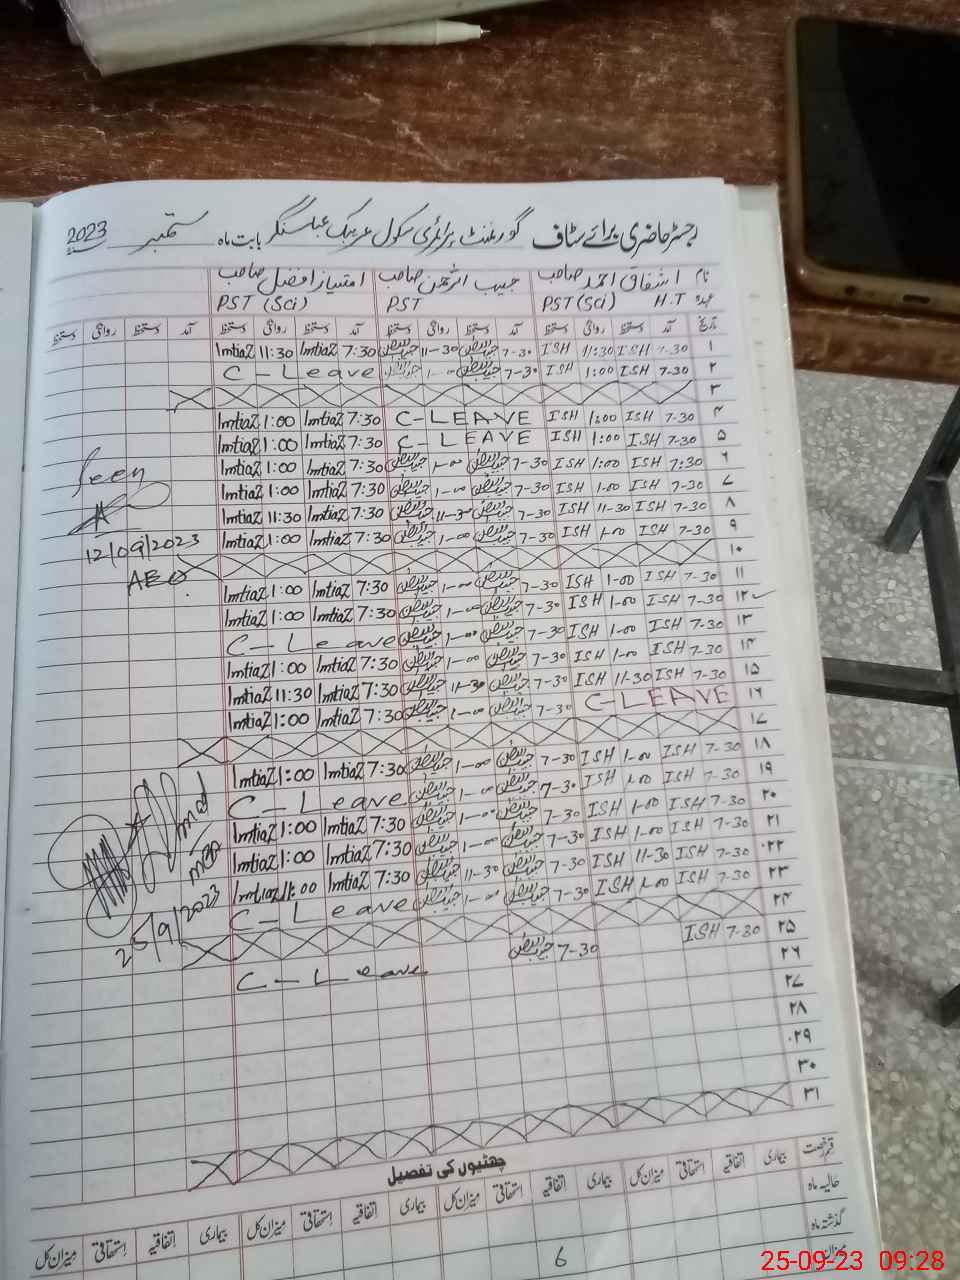 رجسٹر حاضری برائے سٹاف گورنمنٹ پرائمری سکول عباسنگر بابت ماہ ستمبر 2023
نام اشفاق احمد صاحب حبیب الرحمن صاحب امتیاز افضل صاحب
عہدہ H.T PST (Sci) PST PST (Sci)
تاریخ آمد دستخط روانگی دستخط آمد دستخط روانگی دستخط آمد دستخط روانگی دستخط آمد دستخط روانگی دستخط
۱ 7-30 ISH 11:30 ISH 7-30 11-30 7:30 Imtiaz 11:30 Imtiaz
۲ 7-30 ISH 1:00 ISH 7-30 1-00 C-Leave
۳
۴ 7-30 ISH 1:00 ISH C-LEAVE 7:30 Imtiaz 1:00 Imtiaz
۵ 7-30 ISH 1:00 ISH C-LEAVE 7:30 Imtiaz 1:00 Imtiaz
۶ 7:30 ISH 1:00 ISH 7-30 1-00 7:30 Imtiaz 1:00 Imtiaz
۷ 7-30 ISH 1-00 ISH 7-30 1-00 7:30 Imtiaz 1:00 Imtiaz
۸ 7-30 ISH 11-30 ISH 7-30 11-30 7:30 Imtiaz 11:30 Imtiaz
۹ 7-30 ISH 1-00 ISH 7-30 1-00 7:30 Imtiaz 1:00 Imtiaz
۱۰
۱۱ 7-30 ISH 1-00 ISH 7-30 1-00 7:30 Imtiaz 1:00 Imtiaz
۱۲ 7-30 ISH 1-00 ISH 7-30 1-00 7:30 Imtiaz 1:00 Imtiaz
۱۳ 7-30 ISH 1-00 ISH 7-30 1-00 C-Leave
۱۴ 7-30 ISH 1-00 ISH 7-30 1-00 7:30 Imtiaz 1:00 Imtiaz
۱۵ 7-30 ISH 11-30 ISH 7-30 11-30 7:30 Imtiaz 11:30 Imtiaz
۱۶ C-LEAVE 7-30 1-00 7:30 Imtiaz 1:00 Imtiaz
۱۷
۱۸ 7-30 ISH 1-00 ISH 7-30 1-00 7:30 Imtiaz 1:00 Imtiaz
۱۹ 7-30 ISH 1-00 ISH 7-30 1-00 C-Leave
۲۰ 7-30 ISH 1-00 ISH 7-30 1-00 7:30 Imtiaz 1:00 Imtiaz
۲۱ 7-30 ISH 1-00 ISH 7-30 1-00 7:30 Imtiaz 1:00 Imtiaz
۲۲ 7-30 ISH 11-30 ISH 7-30 11-30 7:30 Imtiaz
۲۳ 7-30 ISH 1-00 ISH 7-30 1-00 C-Leave
۲۴
۲۵ 7-30 ISH 7-30 C-Leave
۲۶
۲۷
۲۸
۲۹
۳۰
۳۱
Seen
12/09/2023
AEO
25/9/2023
چھٹیوں کی تفصیل
قسم رخصت بیماری اتفاقیہ استحقاقی میزان کل بیماری اتفاقیہ استحقاقی میزان کل بیماری اتفاقیہ استحقاقی میزان کل بیماری اتفاقیہ استحقاقی میزان کل
حالیہ ماہ
گذشتہ ماہ
میزان 6
25-09-23 09:28